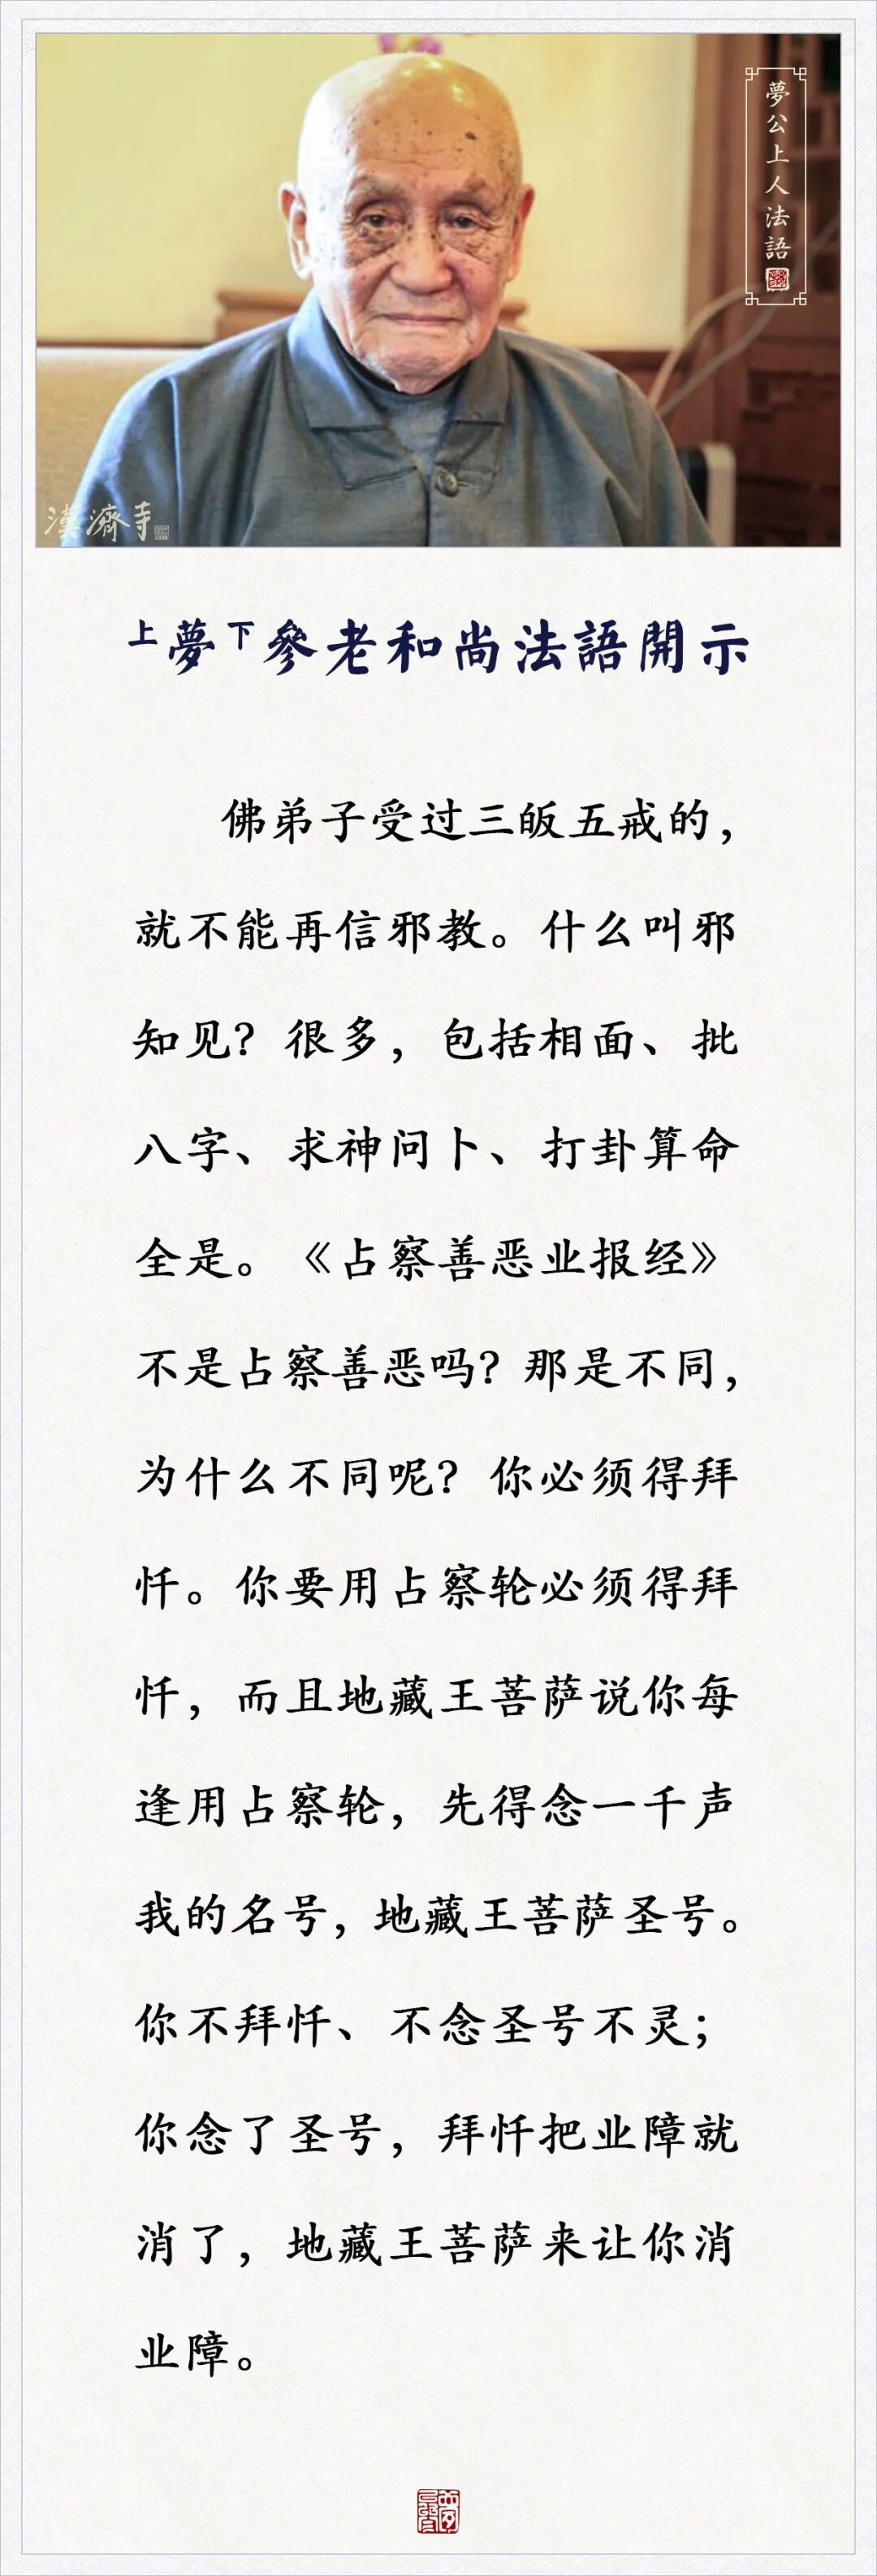 夢公上人法語
漢濟寺
上夢下參老和尚法語開示
佛弟子受过三皈五戒的，
就不能再信邪教。什么叫邪
知见？很多，包括相面、批
八字、求神问卜、打卦算命
全是。《占察善恶业报经》
不是占察善恶吗？那是不同，
为什么不同呢？你必须得拜
忏。你要用占察轮必须得拜
忏，而且地藏王菩萨说你每
逢用占察轮，先得念一千声
我的名号，地藏王菩萨圣号。
你不拜忏、不念圣号不灵；
你念了圣号，拜忏把业障就
消了，地藏王菩萨来让你消
业障。